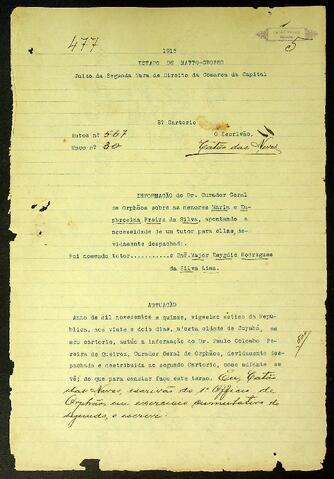 477
1915
5
ESTADO DE MATTO-GROSSO
Juizo da Segunda Vara de Direito da Comarca da Capital
2º Cartorio
Autos nº 567
O Escrivão,
Maço nº 30
Catão das Neves
INFORMAÇÃO do Dr. Curador Geral
de Orphãos sobre as menores Maria e Eu-
phrosina Freire da Silva, apontando a
necessidade de um tutor para ellas, de-
vidamente despachada.
Foi nomeado tutor..........o Cnº. Major Emygdio Rodrigues
da Silva Lima.
AUTUAÇÃO
Anno de mil novecentos e quinze, vigesimo setimo da Republica,
aos vinte e dois dias, n'esta cidade de Cuyabá, em
meu cartorio, autúo a informação do Dr. Paulo Colombo Pe-
reira de Queiroz, Curador Geral de Orphãos, devidamente des-
pachada e destribuida ao segundo Cartorio, como adiante se
vê; do que para constar faço este termo. Eu, Catão
das Neves, escrivão do 1º Officio de
Orphãos, em exercicio cumulativo do
segundo, o escrevi.